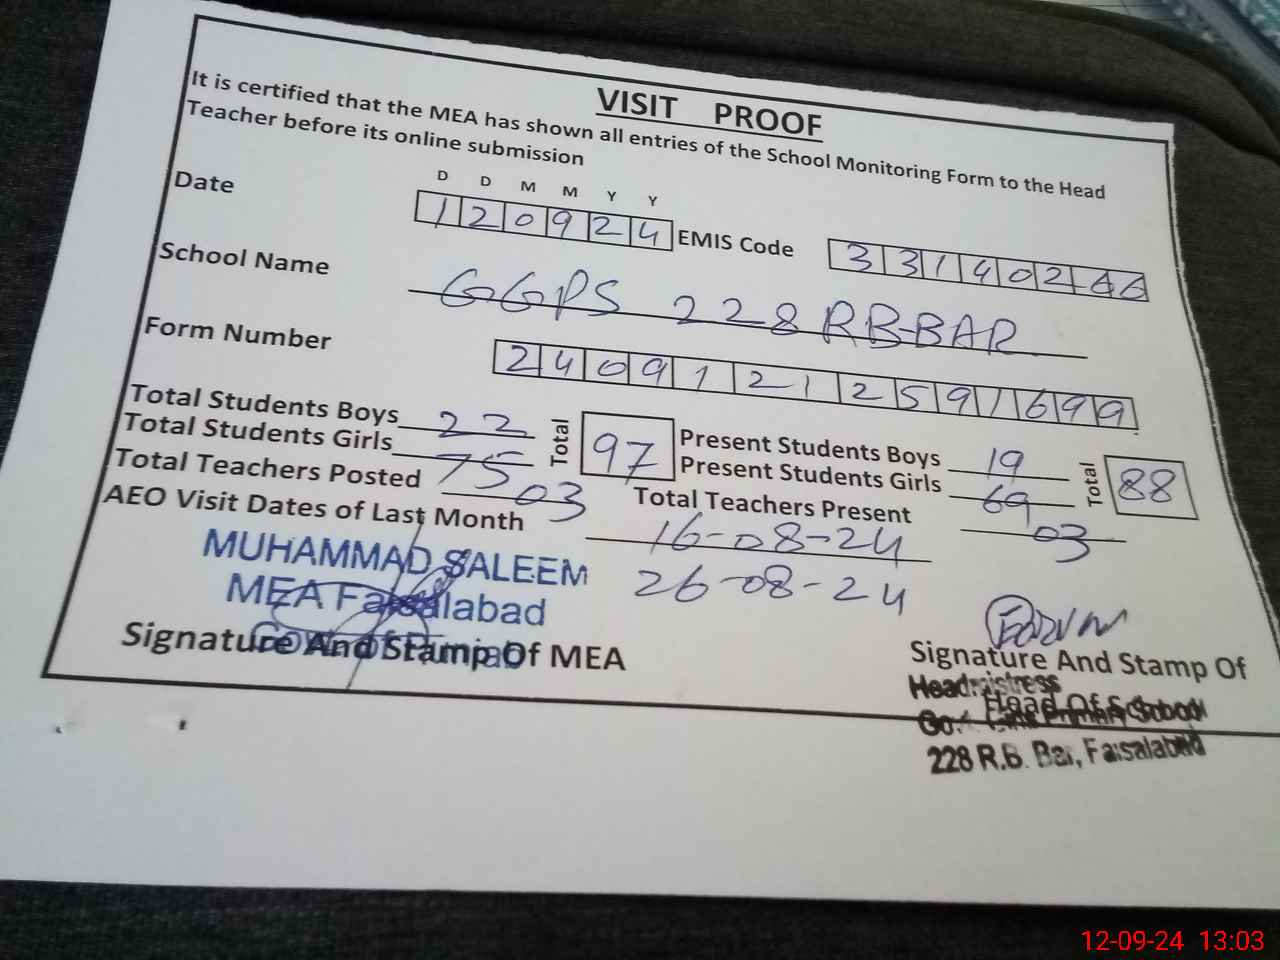 VISIT PROOF
It is certified that the MEA has shown all entries of the School Monitoring Form to the Head
Teacher before its online submission
D D M M Y Y
Date 120924 EMIS Code 33140246
School Name GGPS 228 RB-BAR
Form Number 24091212591699
Total Students Boys 22 Total 97 Present Students Boys 19 Total 88
Total Students Girls 75 Present Students Girls 69
Total Teachers Posted 03 Total Teachers Present 03
AEO Visit Dates of Last Month 16-08-24
26-08-24
MUHAMMAD SALEEM
MEA Faisalabad
Signature And Stamp Of MEA
Signature And Stamp Of
Headmistress
Head Of School
Govt. Girls Primary School
228 R.B. Bar, Faisalabad
12-09-24 13:03